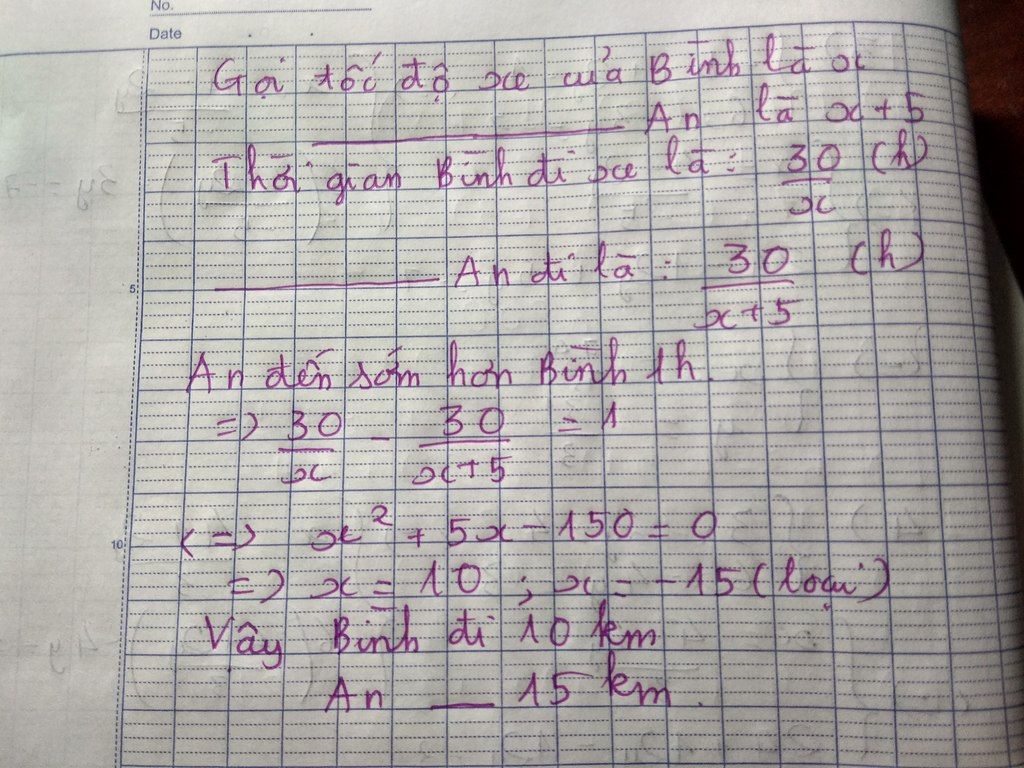 No.
Date
Gọi tốc độ xe của Bình là x
________ An là x+5
Thời gian Bình đi xe là: 30/x (h)
________ An đi là: 30/(x+5) (h)
5
An đến sớm hơn Bình 1h.
=> 30/x - 30/(x+5) = 1
<=> x² + 5x - 150 = 0
10
=> x = 10 ; x = -15 (loại)
Vậy Bình đi 10 km
An __ 15 km.